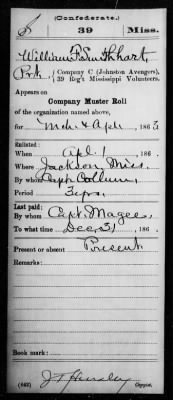 (Confederate.)
S 39 Miss.
William F. Smithhart,
Pvt., Company C (Johnston Avengers),
39 Reg't Mississippi Volunteers.
Appears on
Company Muster Roll
of the organization named above,
for Mch & Apl, 1863
Enlisted:
When Apl. 1, 186 .
Where Jackson, Miss.
By whom Capt. Collum,
Period 3 yrs.
Last paid:
By whom Capt. Magee,
To what time Dec. 31, 186 .
Present or absent Present
Remarks:
Book mark:
(642) Copyist.